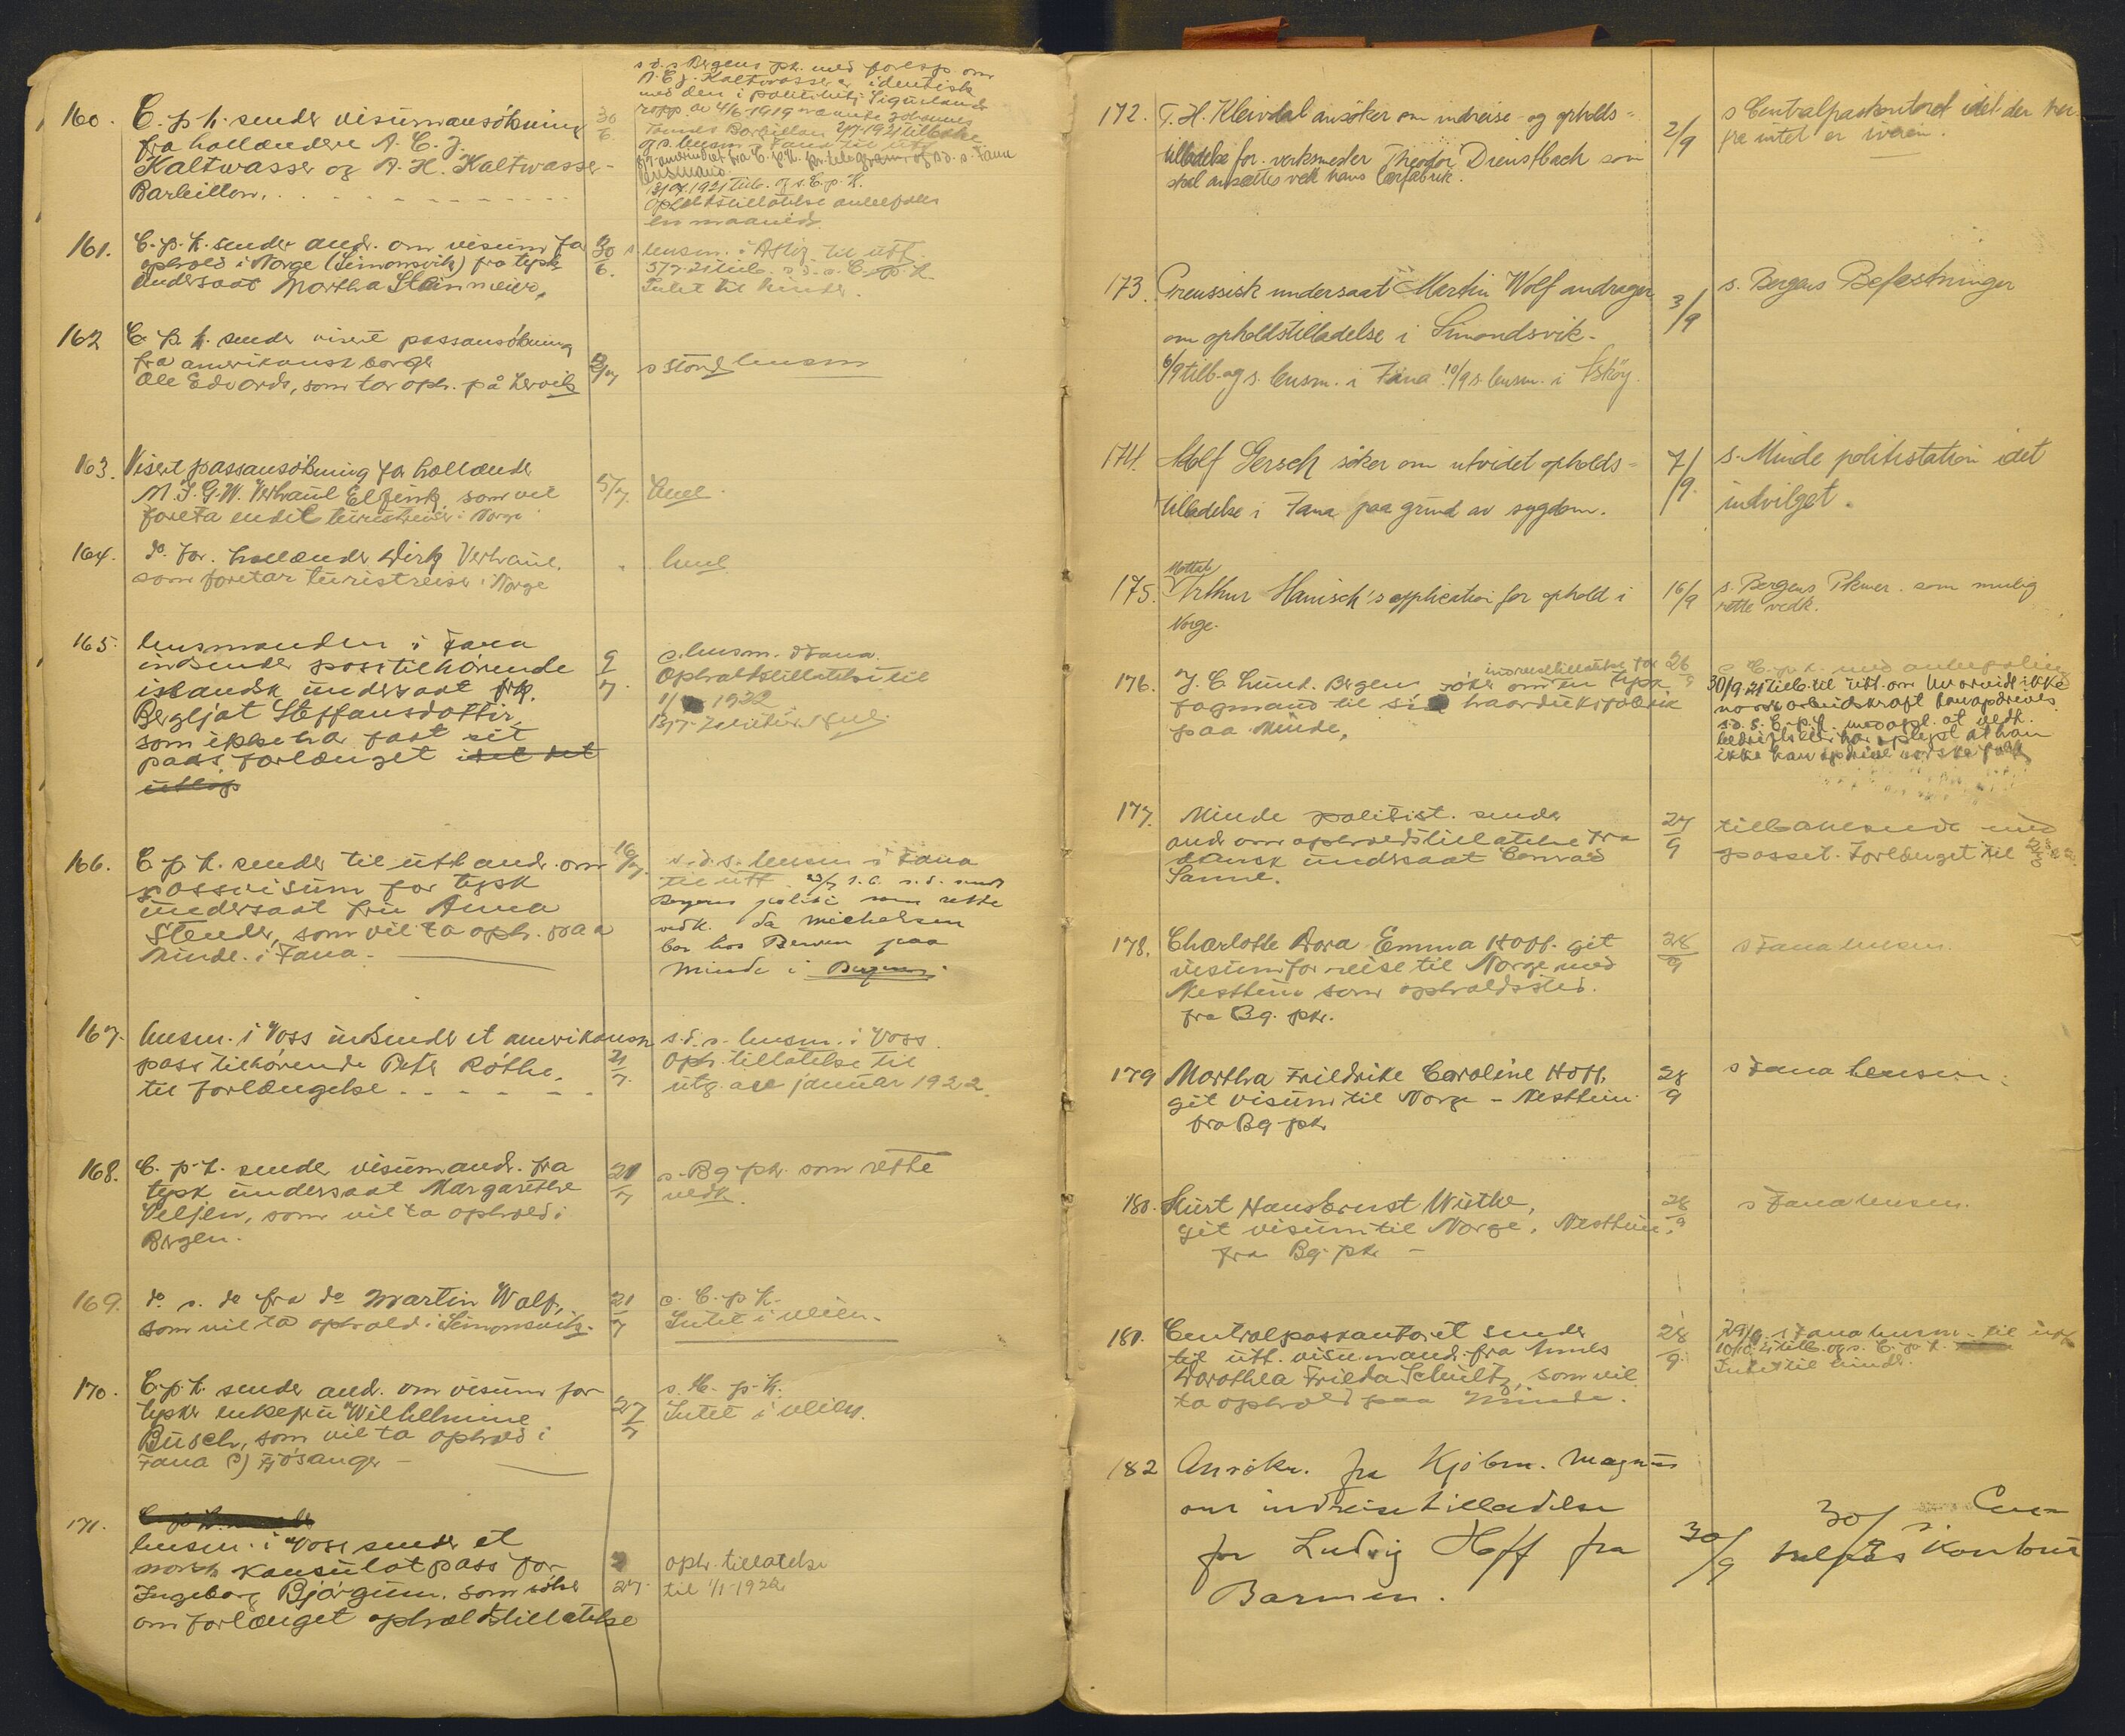 160. C. p. k. sender visumansökning
fra hollændere A. C. J.
Kaltwasser og A. H. Kaltwasser-
Barbillon.
30/6
s. d. s. Bergens pk. med foresp. om
A. C. J. Kaltwasser er identisk
med den i politiets Signalands
rapp. av 4/6-1919 nævnte Johannes
Barbillon 2/7-1921 tilbake
og s. lensm. i Fana til utt.
fra C. p. k. pr. telegram og s. d. s. Fana
lensmand.
1921 tilb. og s. C. p. k.
Opholdstillatelse anbefales
en maaned.
161. C. p. k. sender andr. om visum for
ophold i Norge (Simonsvik) fra tysk
undersaat Martha Steinmeier,
30/6.
s. lensm. i Askøy til utt.
5/7-21 tilb. s. d. s. C. p. k.
Intet til hinder.
162 C. p. k. sender visert passansökning
fra amerikansk borger
Ole Edvards, som tar oph. på Lervik
2/7
s Stord lensm
163. Visert passansökning for hollænder
M. J. G. W. Verhaul Elzink, som vil
foreta endel turistreiser i Norge
5/7.
henl.
164. do. for. hollænder Dirk Verhaul,
som foretar turistreise i Norge
"
henl
165. lensmanden i Fana
indsender pas tilhörende
islandsk undersaat frk.
Bergljot Steffansdottir,
som ikke har faat sit
pass forlænget idet det
utlöp
9/7.
s. lensm. i Fana.
Opholdstillatelse til
1/1 1922
166. C. p. k. sender til utt andr. om
passvisum for tysk
undersaat fru Anna
Stender, som vil ta oph. paa
Minde i Fana.
16/7.
s. d. s. lensm i Fana
til utt. 23/7 s. d. sendt
Bergens politi som rette
vedk. da Michelsen
bor hos Berven paa
Minde i Bergen.
167. lensm. i Voss indsender et amerikansk
pass tilhörende Peter Röthe,
til forlængelse
21/7.
s. d. s. lensm. i Voss.
Oph. tillatelse til
utg. av januar 1922.
168. C. p. k. sender visumandr. fra
tysk undersaat Margarethe
Veljen, som vil ta ophold i
Bergen.
21/7
s. Bg pk. som rette
vedk.
169. do. s. do fra do Martin Wolf,
som vil ta ophold i Simonsvik.
21/7
s. C. p. k.
Intet i veien.
170. C. p. k. sender andr. om visum for
tysker enkefru Wilhelmine
Busch, som vil ta ophold i
Fana (?) Fjösanger
27/7
s. C. p. k.
Intet i veien.
171.
lensm. i Voss sender et
norsk konsulatpass for
Ingeborg Björgum, som söker
om forlænget opholdstillatelse
27.
oph. tillatelse
til 1/1-1922
172. T. H. Kleivdal ansöker om indreise- og opholds-
tilladelse for verksmester Theodor Dienstbach som
skal ansættes ved hans lærfabrik.
2/9
s Centralpaskontoret idet der her-
fra intet er iveien.
173. Preussisk undersaat Martin Wolf andrager
om opholdstilladelse i Simondsvik.
6/9 tilb. og s. lensm. i Fana 10/9 s. lensm. i Askøy.
3/9
s. Bergens Befæstninger
174. Adolf Gersch söker om utvidet opholds-
tilladelse i Fana paa grund av sygdom.
7/9.
s. Minde politistation idet
indvilget.
175. Mottat
Arthur Hanisch's application for ophold i
Norge.
16/9
s. Bergens Pkmer. som mulig
rette vedk.
176. J. C. Lund. Bergen söker om indreisetillatelse for en tysk
fagmand til sin haarduksfabrik
paa Minde,
26/9
s. C. p. k. med anbefaling
30/9-21 tilb. til utt. om hvorvidt ikke
norsk arbeidskraft kan opdrives.
s. d. s. C. p. k. med opl. at vedk.
bedriftseier har oplyst at han
ikke kan opdrive norske folk
177. Minde politist. sender
andr om opholdstillatelse fra
dansk undersaat Conrad
Sanne.
27/9
tilbakesendt med
passet. Forlænget til
178. Charlotte Dora Emma Hoff. git
visum for reise til Norge med
Nesttun som opholdssted.
fra Bg. pk.
28/9
s Fana lensm.
179 Martha Friedrike Caroline Hoff.
git visum til Norge - Nesttun
fra Bg pk
28/9
s Fana lensm.
180. Kurt Hans Ernst Wuthe,
git visum til Norge. Nesttun.
fra Bg. pk -
28/9
s Fana lensm.
181. Centralpaskontoret sender
til utt. visumandr. fra Agnes
Dorothea Frieda Schultz, som vil
ta ophold paa Minde.
28/9.
29/9. s Fana lensm. til utt
10/10 21 tilb. og s. C. p. k.
Intet til hinder.
182 Ansökn. fra Kjöbm. Magnus
om indreisetilladelse
for Ludvig Hoff fra
Barmen.
30/9
30/9 s. Cen-
tralpaskontoret